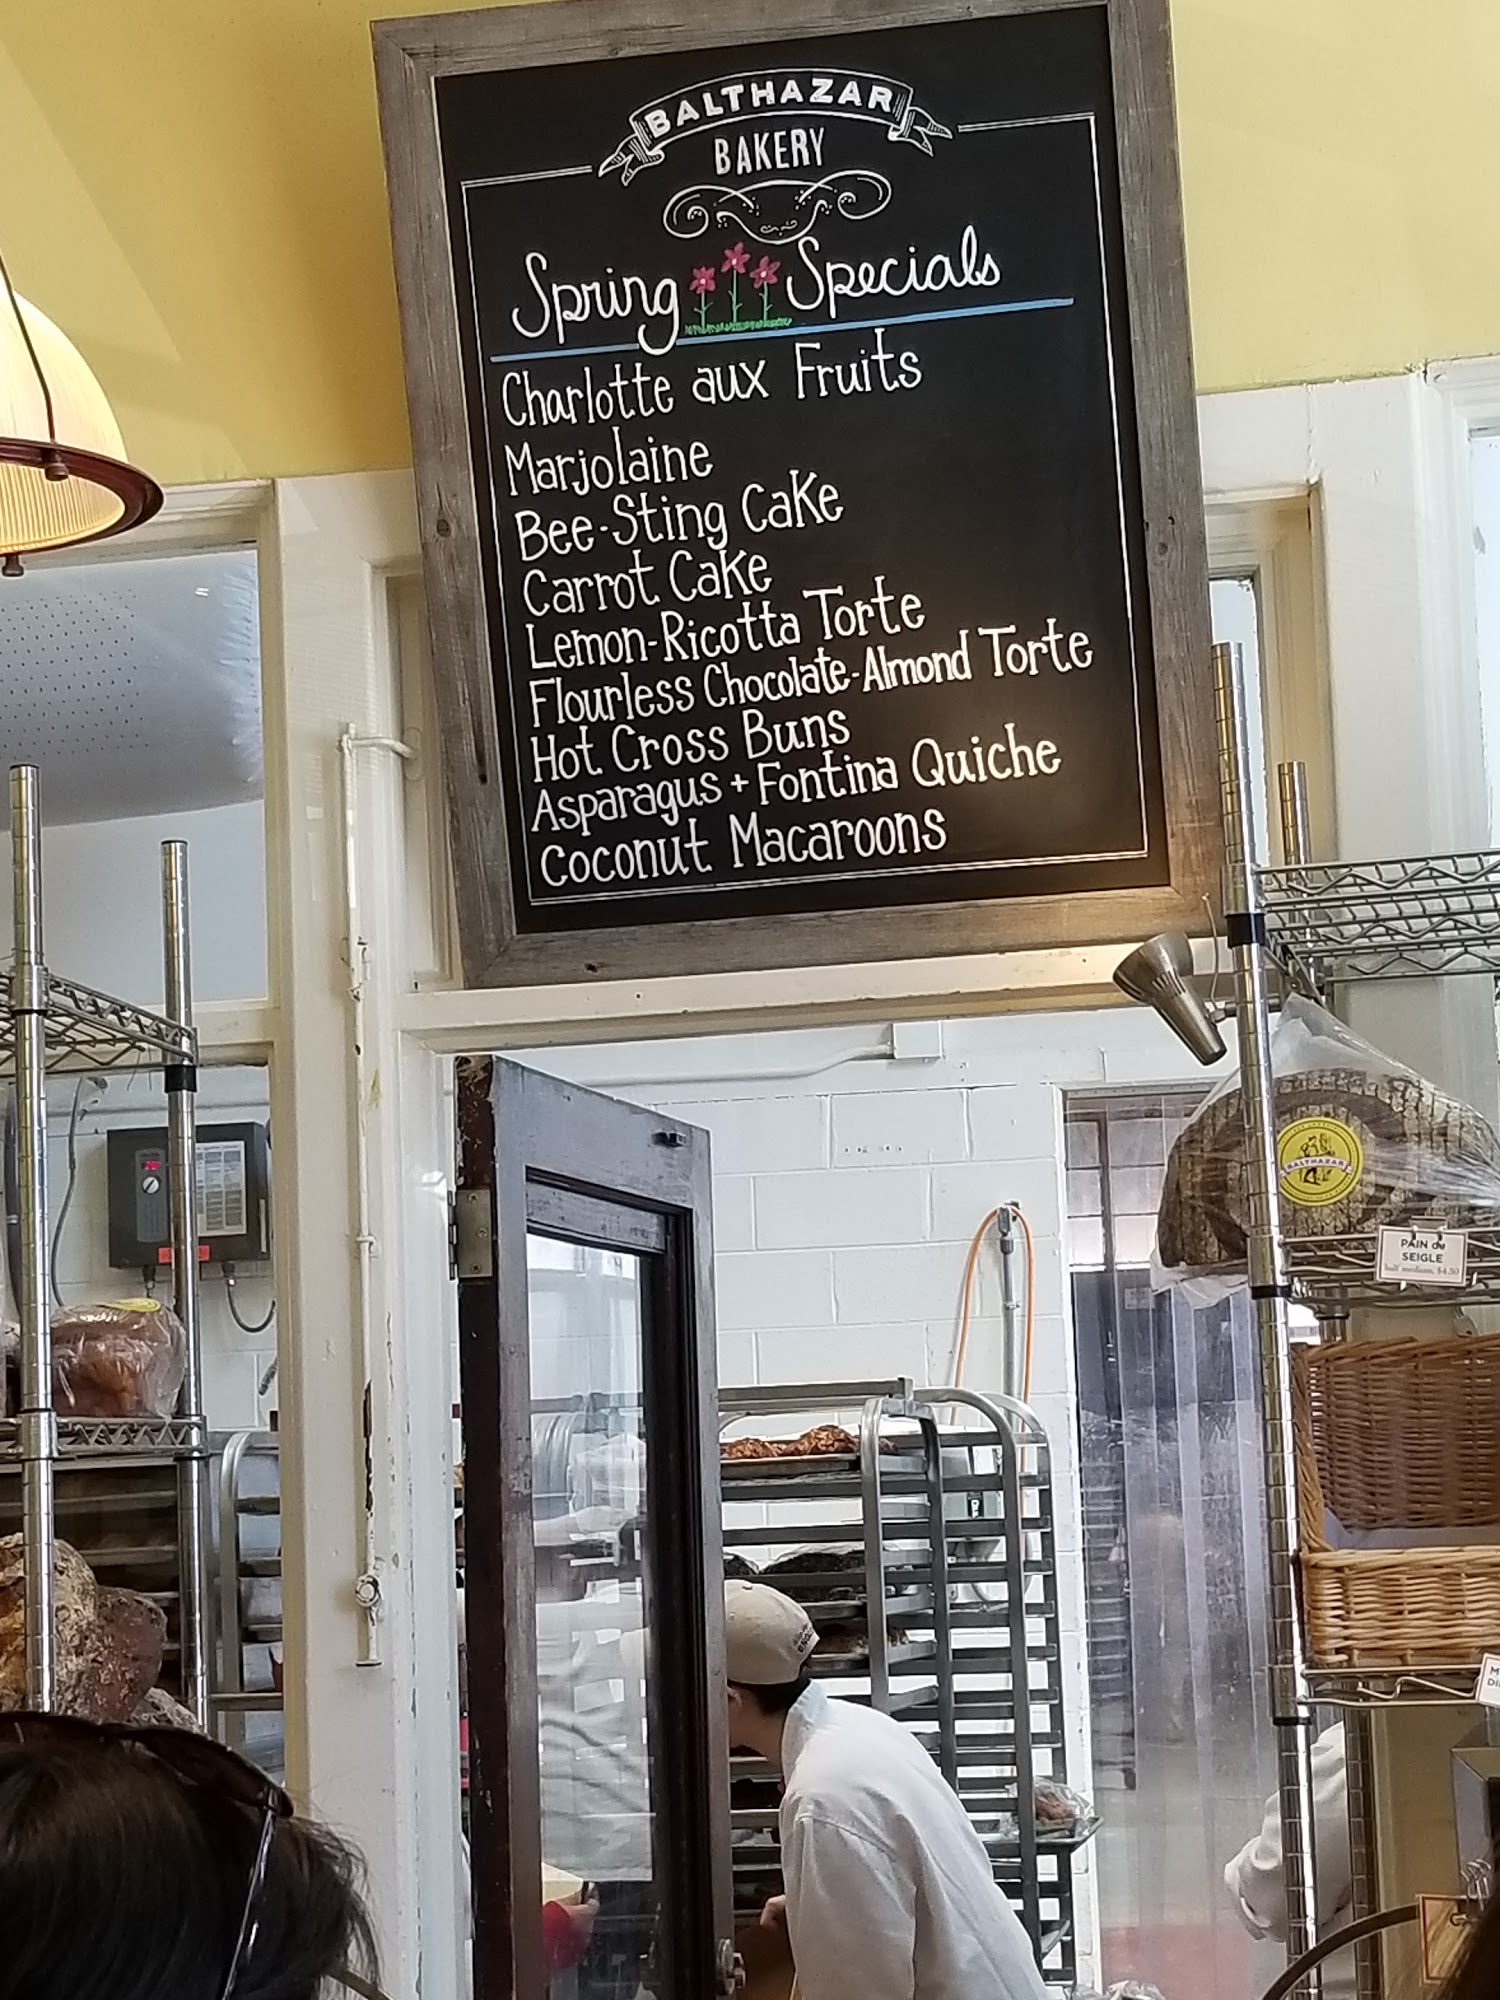 BALTHAZAR
BAKERY
Spring Specials
Charlotte aux Fruits
Marjolaine
Bee-Sting Cake
Carrot Cake
Lemon-Ricotta Torte
Flourless Chocolate-Almond Torte
Hot Cross Buns
Asparagus + Fontina Quiche
Coconut Macaroons
BALTHAZAR
PAIN de
SEIGLE
half medium, $4.50